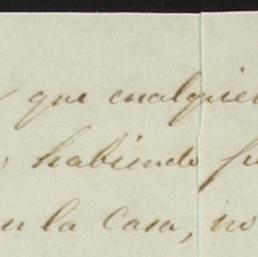 que cualquier
habiendo
en la Casa, no